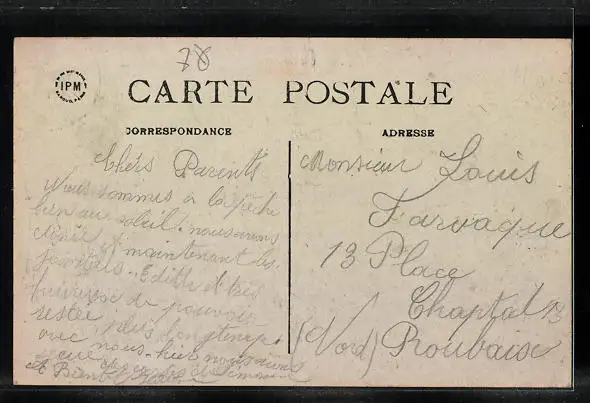 78
IPM
CARTE POSTALE
CORRESPONDANCE
ADRESSE
Chers Parents
Nous sommes à la pêche
bien au soleil. nous avons
maintenant les
Edith et très
heureuse de pouvoir
rester plus longtemps
avec nous. hier nous avons
Monsieur Louis
Farvaque
13 Place
Chaptal 13
(Nord) Roubaix